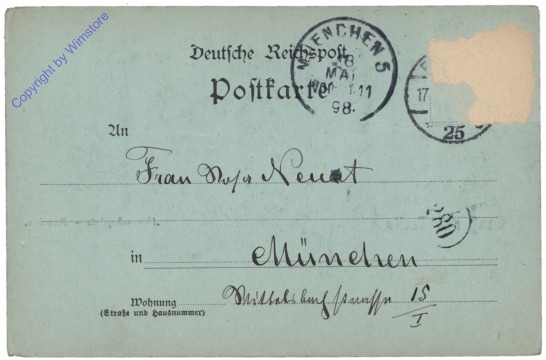 Copyright by Wimstore
Deutsche Reichspost
Postkarte
MUENCHEN 5
18
MAI
98.
17
25
An
Frau Rosa Neust
280
in München
Wohnung
(Straße und Hausnummer)
Wittelsbachstrasse 15/I